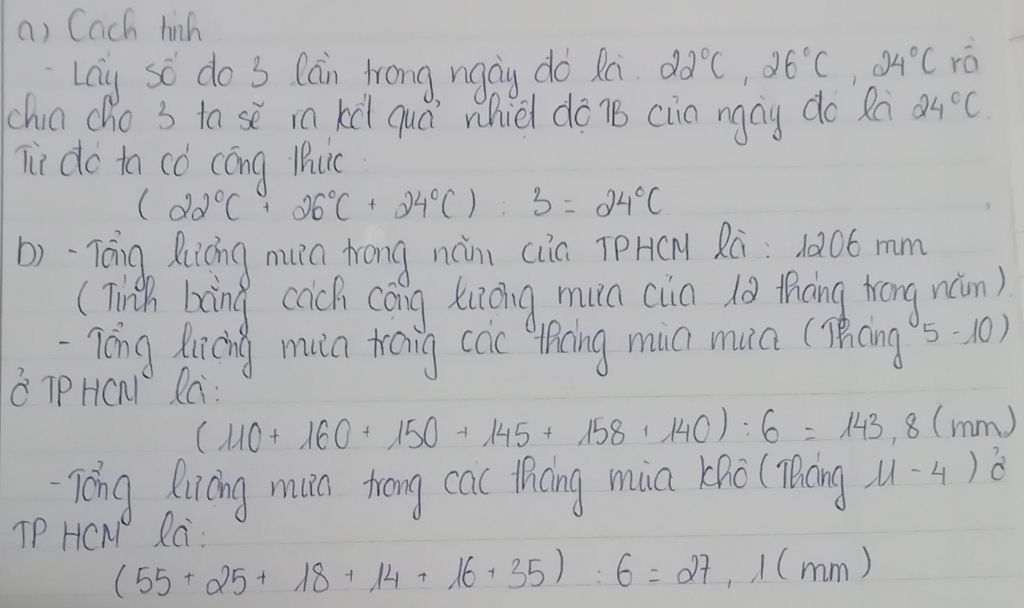 a) Cách tính
- Lấy số đo 3 lần trong ngày đó là 22°C, 26°C, 24°C rồ
chia cho 3 ta sẽ ra kết quả nhiệt độ TB của ngày đó là 24°C.
Từ đó ta có công thức:
(22°C + 26°C + 24°C) : 3 = 24°C
b) - Tổng lượng mưa trong năm của TPHCM là: 1206 mm
(Tính bằng cách cộng lượng mưa của 12 tháng trong năm)
- Tổng lượng mưa trong các tháng mùa mưa (Tháng 5-10)
ở TP HCM là:
(110 + 160 + 150 + 145 + 158 + 140) : 6 = 143,8 (mm)
- Tổng lượng mưa trong các tháng mùa khô (Tháng 11-4) ở
TP HCM là:
(55 + 25 + 18 + 14 + 16 + 35) : 6 = 27,1 (mm)